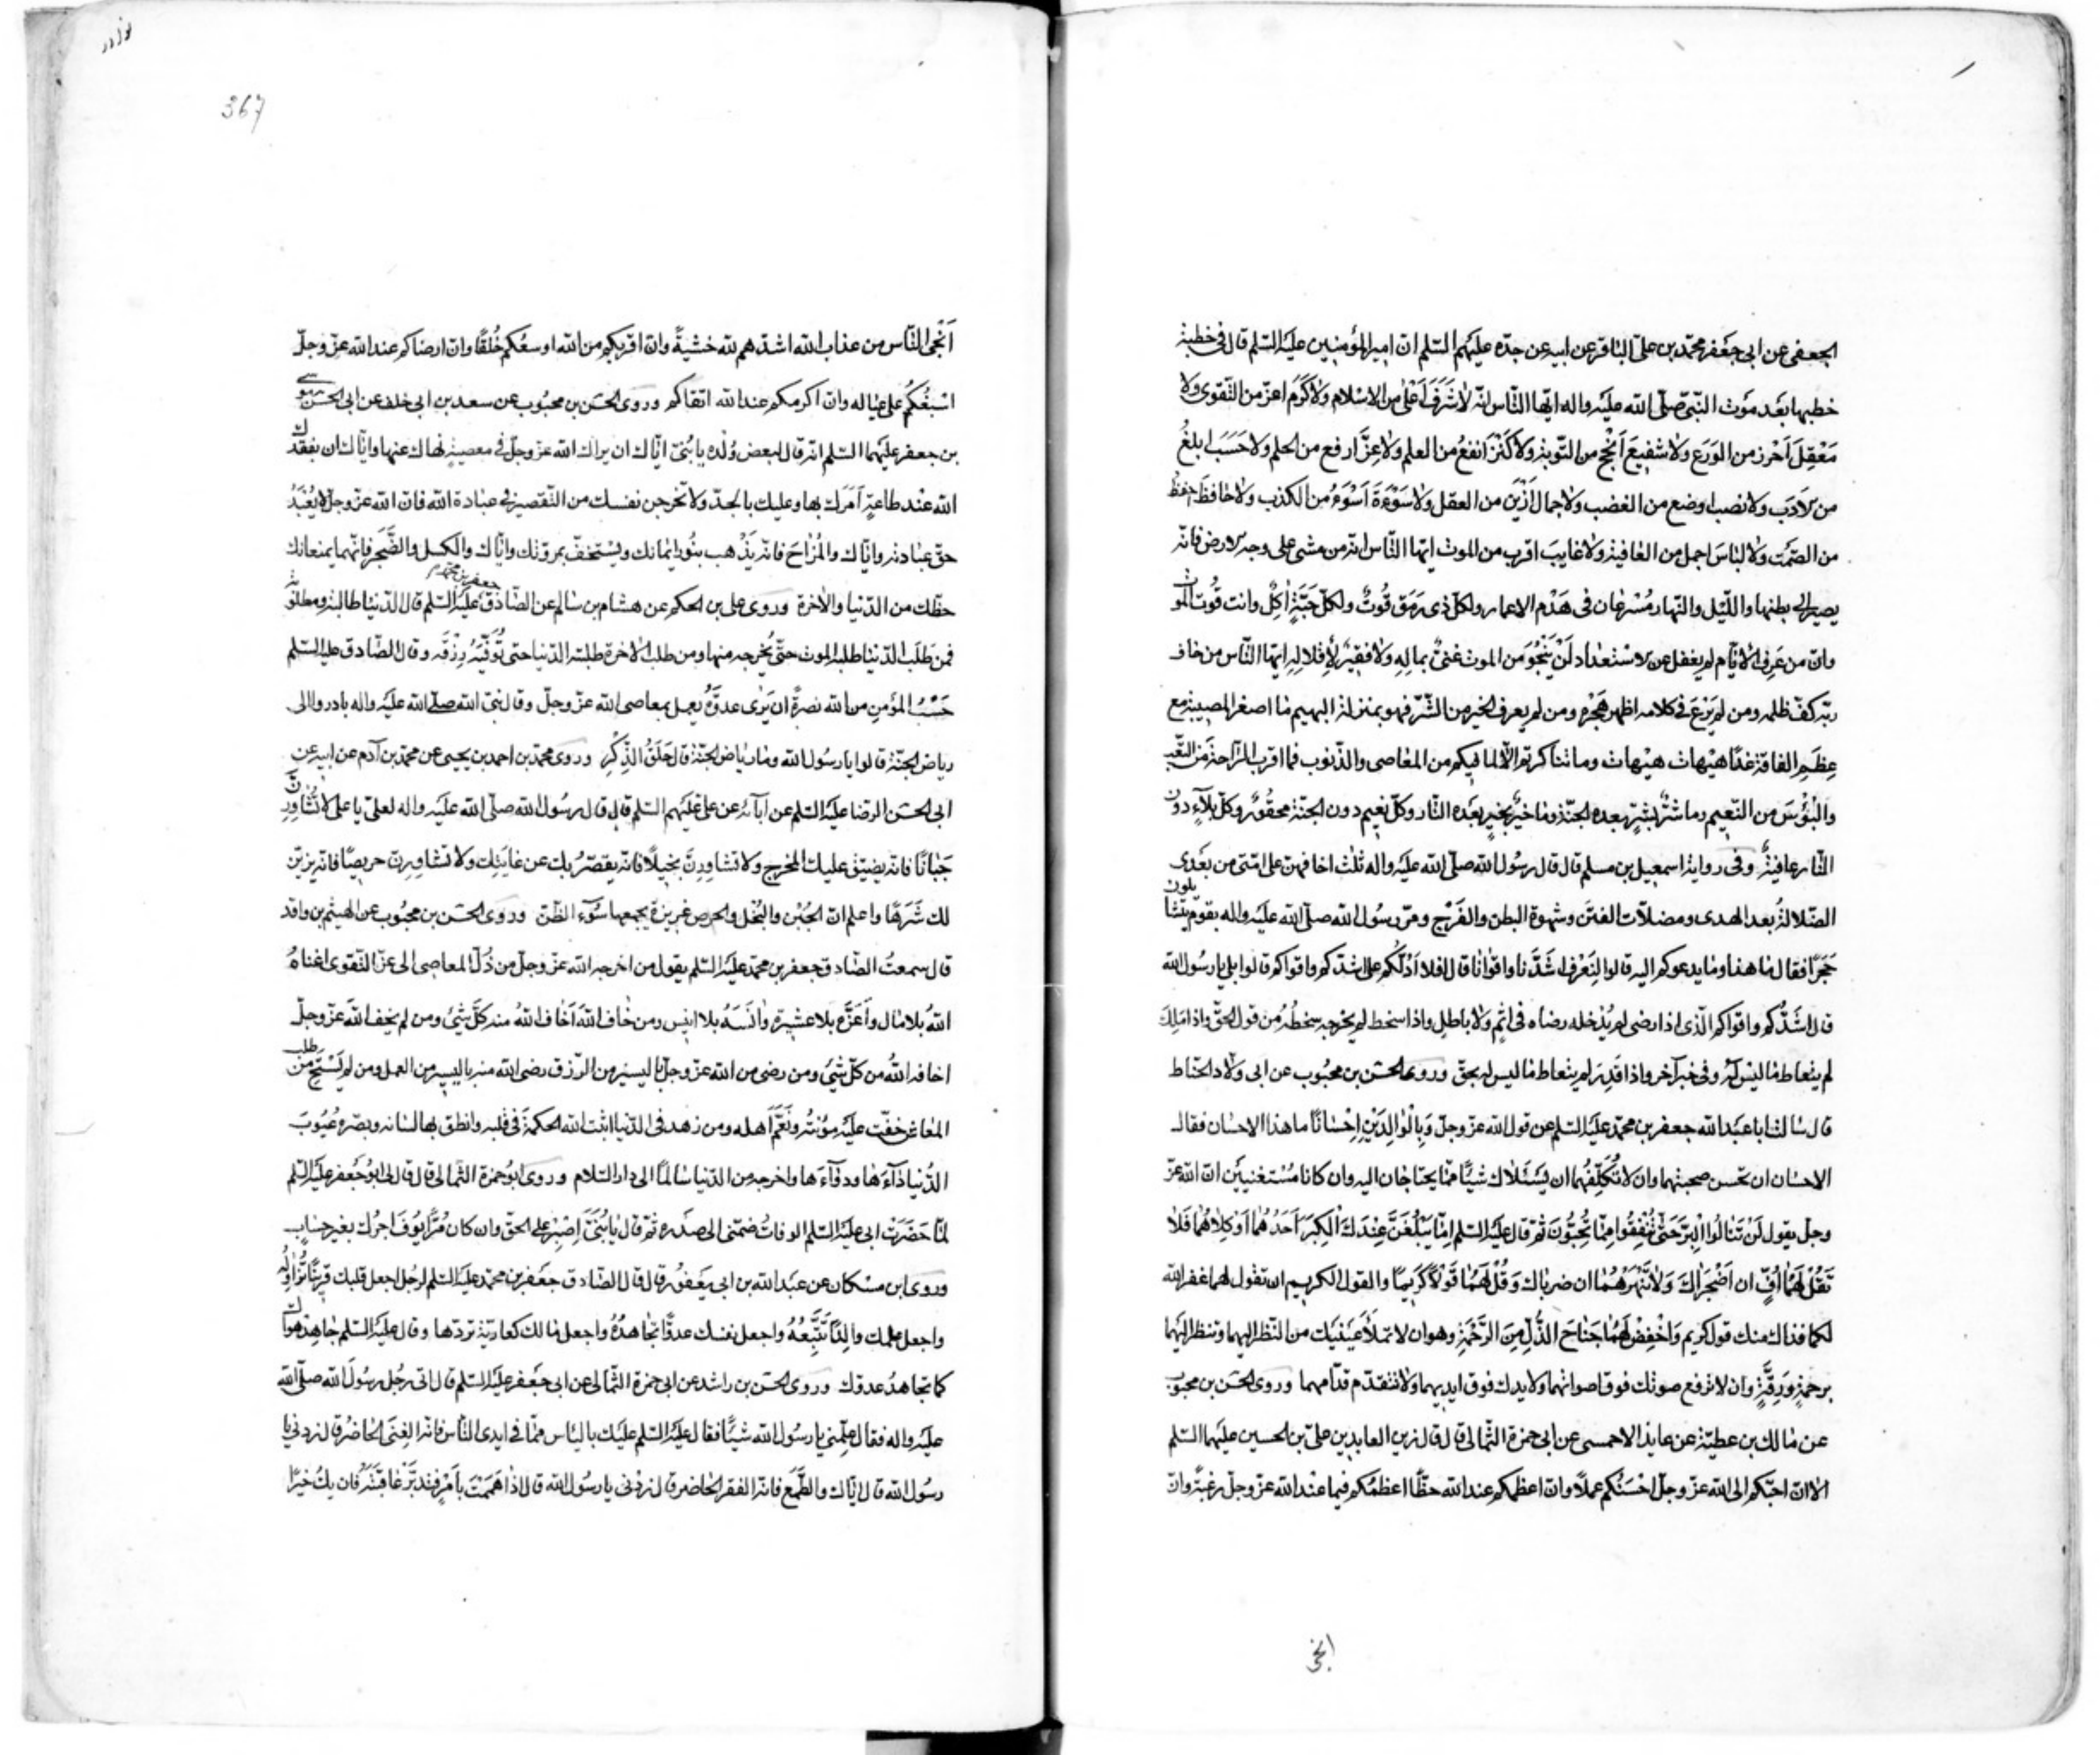 الجعفى عن ابى جعفر محمّد بن علىّ الباقر عن ابيه عن جدّه عليهم السّلم انّ امير المؤمنين عليه السّلم قال فى خطبة
خطبها بعد موت النّبىّ صلّى الله عليه واله ايّها النّاس انّه لا شَرَفَ اَعْلى من الاسلام ولا كَرَمَ اعزّ من التّقوى ولا
مَعْقِلَ اَحْرز من الوَرَع ولا شفيعَ اَنْجَحُ من التّوبة ولا كَنْزَ انفعُ من العلم ولا عِزَّ ارفع من الحلم ولا حَسَبَ ابلغُ
من الاَدَب ولا نصب اوضع من الغضب ولا جمال اَزْيَن من العقل ولا سَوْءَةَ اَسْوَءُ من الكذب ولا حافظَ احفظُ
من الصّمْت ولا لباسَ اجمل من العافية ولا غايبَ اقرب من الموت ايّها النّاس انّه من مشى على وجه الارض فانّه
يصير الى بطنها واللّيل والنّهار مُسْرعَان فى هَدْم الاعمار ولكلّ ذى رَمَق قُوتٌ ولكلّ حَبّةٍ اٰكِلٌ وانت قُوت الموت
وانّ من عَرِف الايّام لم يغفل عن الاستعداد لَنْ يَنْجُوَ من الموت غنىٌّ بمالِهِ ولا فقيرٌ لاِقلالِهِ ايّها النّاس من خاف
ربّه كفّ ظلمه ومن لم يَرْعَ فى كلامه اظهر هَجْرَه ومن لم يعرف الخير من الشّرّ فهو بمنزلة البهيم ما اصغر المصيبة مع
عِظَمِ الفاقة غدًا هَيْهات هَيْهات وما تناكرتم الّا لما فيكم من المعاصى والذّنوب فما اقرب الرّاحة من التّعب
والبُؤسَ من النّعيم وما شرٌّ بِشَرٍّ بعده الجنّة وما خيرٌ بخيرٍ بعده النّار وكلّ نعيم دون الجنّة محقُورٌ وكلّ بلآءٍ دون
النّار عافيةٌ وفى رواية اسمعيل بن مسلم قال قال رسُول الله صلّى الله عليه واله ثلث اخافهنّ على امّتى من بعدى
الضّلالةُ بعد الهدى ومضلّات الفتن وشهوة البطن والفَرْج ومرّ رسُول الله صلّى الله عليه واله بقوم يتشايلون
حَجَرًا فقال ما هذا وما يدعوكم اليه قالوا لِنَعْرفَ اشَدَّنا واقوانا قال افلا اَدُلّكُم على اشدّكم واقواكم قالوا بلى يا رسُول الله
قال اشَدُّكم واقواكم الّذى اذا رضى لم يُدْخله رضاه فى اثمٍ ولا باطلٍ واذا سخط لم يخرجه سخطُهُ من قول الحقّ واذا ملك
لم يتعاط ما ليس لَهُ وفى خبر آخر واذا قَدِرَ لم يتعاط ما ليس له بحقّ وروى الحسَن بن محبُوب عن ابى ولّاد الحنّاط
قال سالت ابا عبد الله جعفر بن محمّد عليه السّلم عن قول الله عزّ وجلّ وَبِالْوَالِدَيْنِ اِحْسَانًا ما هذا الاحسان فقال
الاحسَان ان تحسن صحبتهما وان لا تُكَلِّفَهُما ان يَسْئَلاك شيئًا ممّا يحتاجان اليه وان كانا مُسْتغنيَين انّ الله عزّ
وجلّ يقول لَنْ تَنالُوا البِرَّ حَتّى تُنْفِقُوا مِمّا تُحِبُّونَ ثمّ قال عليه السّلم اِمّا يَبْلُغَنَّ عِنْدَكَ الْكِبَرَ اَحَدُهُما اَوْ كِلاهُما فَلا
تَقُلْ لَهُما اُفٍّ ان اَضْجَراكَ وَلا تَنْهَرْهُما ان ضرباك وَقُلْ لَهُما قَوْلاً كَرِيمًا والقول الكريم ان تقول لهما غفر الله
لكما فذاك منك قول كريم وَاخْفِضْ لَهُما جَناحَ الذُّلِّ مِنَ الرَّحْمَةِ وهو ان لا تملأ عَيْنَيْك من النّظر اليهما وتنظر اليهما
برحمةٍ وَرِقّةٍ وان لا ترفع صوتك فوق اصواتهما ولا يدك فوق ايديهما ولا تتقدّم قدّامهما وروى الحسَن بن محبُوب
عن مالك بن عطيّة عن عايذ الاحمسى عن ابى حمزة الثّمالى قال قال زين العابدين علىّ بن الحسين عليهما السّلم
الا انّ احبّكم الى الله عزّ وجلّ احْسَنُكم عملاً وانّ اعظمكم عند الله حظًّا اعظمُكم فيما عند الله عزّ وجلّ رغبةً وانّ
انجى
367
اَنْجَى النّاس من عذاب الله اشدّهم لله خشيةً وانّ اقربكم من الله اوسعُكم خُلقًا وانّ ارضاكم عند الله عزّ وجلّ
اسْبغُكُم على عياله وانّ اكرمكم عند الله اتقاكم وروى الحسَن بن محبُوب عن سعد بن ابى خلف عن ابى الحسن موسى
بن جعفر عليهما السّلم انّه قال لبعض وُلْده يا بُنىّ ايّاك ان يراك الله عزّ وجلّ فى معصية نهاك عنها وايّاك ان يفقدك
الله عند طاعةٍ اَمَرَك بها وعليك بالجدّ ولا تخرجن نفسك من التّقصير فى عبادة الله فانّ الله عزّ وجلّ لا يُعْبَدُ
حقّ عبادته وايّاك والمُزاحَ فانّه يَذْهب بنُور ايمانك ويسْتخفّ بمروّتك وايّاك والكسل والضّجر فانّهما يمنعانك
حظّك من الدّنيا والآخرة وروى على بن الحكم عن هشام بن سالم عن الصّادق جعفر بن محمّد عليه السّلم قال الدّنيا طالبة ومطلوبة
فمن طَلَبَ الدّنيا طلبه الموت حتّى يُخرجه منها ومن طلب الآخرة طلبته الدّنيا حتى تُوَفّيَه رِزْقَه وقال الصّادق عليه السّلم
حَسْبُ المؤمن من الله نصرةً ان يَرٰى عدوَّه يعمل بمعاصى الله عزّ وجلّ وقال نبىّ الله صلّى الله عليه واله بادروا الى
رياض الجنّة قالوا يا رسُول الله وما رياض الجنّة قال حِلَقُ الذّكْرِ وروى محمّد بن احمد بن يحيى عن محمّد بن آدم عن ابيه عن
ابى الحسَن الرضا عليه السّلم عن آبآئه عن على عليهم السّلم قال قال رسُول الله صلّى الله عليه واله لعلىّ يا على لا تُشاوِرَنّ
جَبَانًا فانّه يضيّق عليك المخرج ولا تشاورنّ بخيلاً فانّه يقصّرُ بك عن غايتك ولا تشاورنّ حريصًا فانّه يزيّن
لك شَرَهًا واعلم انّ الجُبْن والبُخْل والحرص غريزة يجمعها سُوء الظّنّ وروى الحسَن بن محبُوب عن الهيثم بن واقد
قال سمعتُ الصّادق جعفر بن محمّد عليه السّلم يقول من اخرجه الله عزّ وجلّ من ذُلّ المعاصى الى عزّ التّقوى اغناهُ
اللهُ بلا مال واَعَزَّه بلا عشيرة واٰنَسَهُ بلا انيس ومن خاف اللهَ اَخافَ اللهُ منه كلّ شئ ومن لم يخف اللهَ عزّ وجلّ
اخافه اللهُ من كلّ شئ ومن رضى من الله عزّ وجلّ باليسير من الرّزق رضى الله منه باليسير من العمل ومن لم يَسْتَحِ من طلب
المعاش خفّت عليه مؤنته ونَعَّمَ اَهله ومن زهد فى الدّنيا اثبت الله الحكمةَ فى قلبه وانطق بها لسانه وبصّره عُيُوبَ
الدُّنيا دآءَها ودوآءَها واخرجه من الدّنيا سالمًا الى دار السّلام وروى ابُو حمزة الثمالى قال قال لى ابُو جعفر عليه السّلم
لمّا حَضَرَتْ ابى عليه السّلم الوفاتُ ضمّنى الى صدره ثمّ قال يا بُنَىَّ اِصْبِرْ على الحقّ وان كان مُرًّا يُوَفَّ اجرُك بغير حساب
وروى ابن مسْكان عن عبد الله بن ابى يعفُور قال قال الصّادق جعفر بن محمّد عليه السّلم لرجُل اجعل قلبك قرينًا تُزاوِلُه
واجعل علمك والدًا تَتَّبِعُهُ واجعل نفسك عدوًّا تجاهدُهُ واجعل مالك كعاريّة تردّها وقال عليه السّلم جاهد هواك
كما تجاهدُ عدوّك وروى الحسَن بن راشد عن ابى حمزة الثّمالى عن ابى جعفر عليه السّلم قال اتى رجُل رسُول الله صلّى الله
عليه واله فقال علّمنى يا رسُول الله شيئًا فقال عليه السّلم عليك باليأس ممّا فى ايدى النّاس فانّه الغِنَى الحاضرُ قال زدنى يا
رسُول الله قال ايّاك والطّمَعَ فانّه الفقر الحاضر قال زدْنى يا رسُول الله قال اذا هَمَمْتَ بأمْرٍ فتدبّرْ عاقبَتَه فان يكُ خيرًا